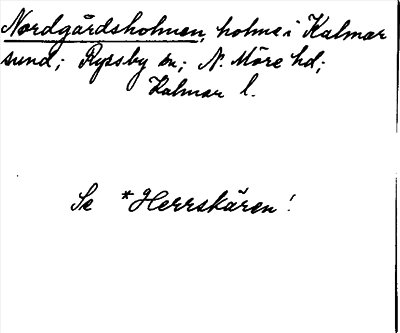 Nordgårdsholmen, holme i Kalmar
sund; Ryssby sn; N. Möre hd;
Kalmar l.
Se *Herrskären!